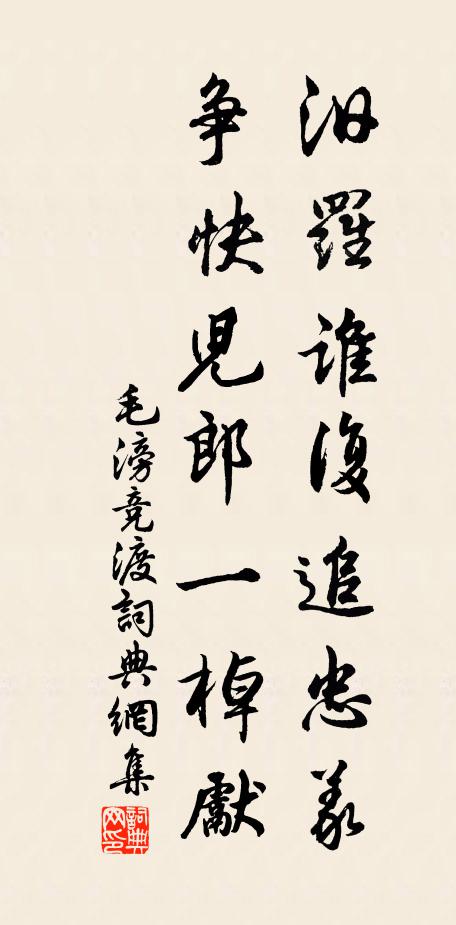 汨羅誰復追忠義
争快児郎一棹獻
毛滂竞渡詞典網集
詞典网印